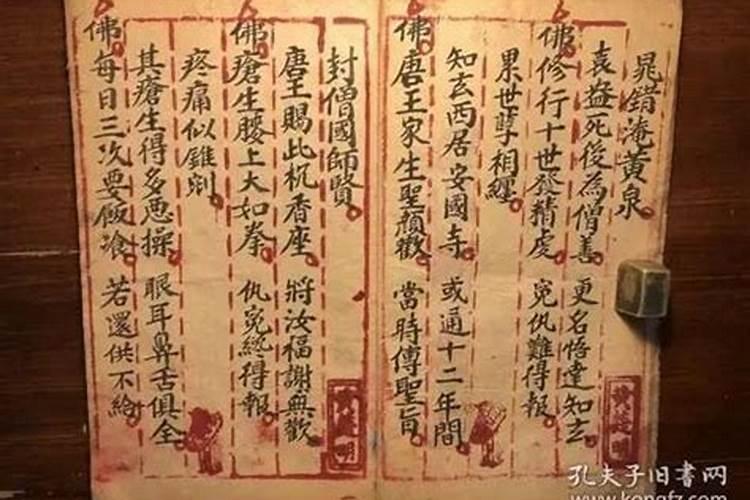 晁錯淹黄泉
袁益死後為僧善 更名悟達知玄
佛修行十世發精虔 寃仇難得報
累世孽相纏
知玄西居安國寺 或通十二年間
佛唐王家生聖顏歡 當時傳聖旨
封僧國師賢
唐王賜此机香座 將汝福謝無歡
佛瘡生腰上大如拳 仇寃終得報
疼痛似錐剜
其瘡生得多悪操 眼耳鼻舌俱全
佛每日三次要飯飡 若還供不給
孔夫子旧书网
www.kongfz.com